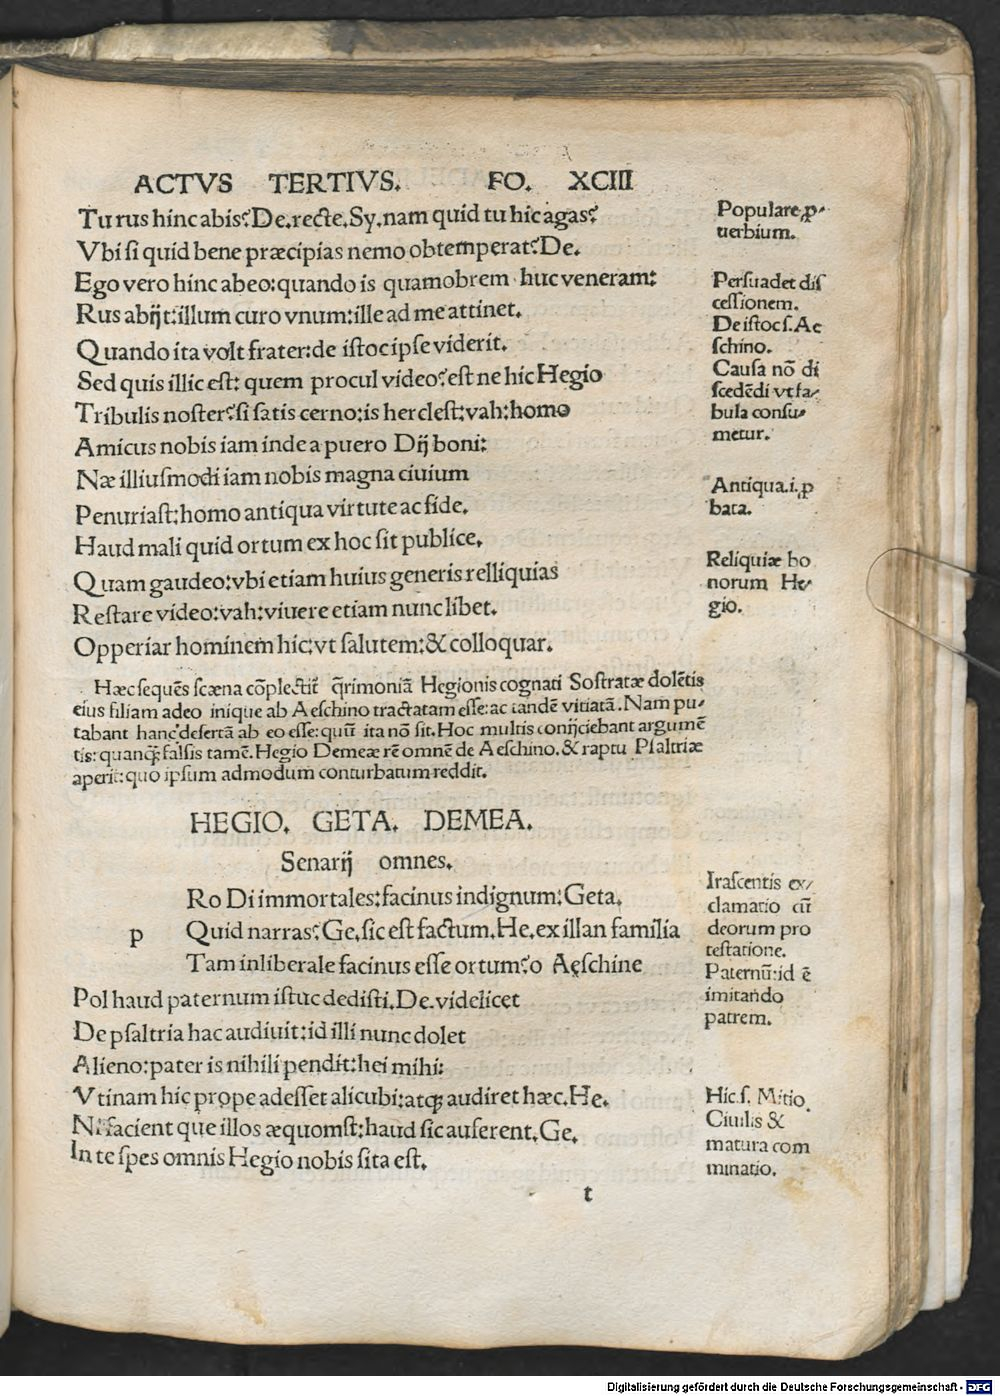 ACTVS TERTIVS. FO. XCIII
Tu rus hinc abis? De. recte. Sy. nam quid tu hic agas?
Vbi si quid bene præcipias nemo obtemperat? De.
Ego vero hinc abeo: quando is quamobrem huc veneram:
Rus abijt: illum curo vnum: ille ad me attinet.
Quando ita volt frater: de istoc ipse viderit.
Sed quis illic est: quem procul video? est ne hic Hegio
Tribulis noster? si satis cerno: is herclest: vah: homo
Amicus nobis iam inde a puero Dij boni:
Næ illiusmodi iam nobis magna ciuium
Penuriast: homo antiqua virtute ac fide.
Haud mali quid ortum ex hoc sit publice.
Quam gaudeo: vbi etiam huius generis relliquias
Restare video: vah: viuere etiam nunc libet.
Opperiar hominem hic: vt salutem: & colloquar.
Hæc sequēs scæna cōplectit q̄rimoniā Hegionis cognati Sostratæ dolētis
eius filiam adeo inique ab Aeschino tractatam esse: ac tandē vitiatā. Nam pu-
tabant hanc desertā ab eo esse: quū ita nō sit. Hoc multis conijciebant argumē
tis: quanqꝫ falsis tamē. Hegio Demeæ rē omnē de Aeschino. & raptu Psaltriæ
aperit: quo ipsum admodum conturbatum reddit.
HEGIO. GETA. DEMEA.
Senarij omnes.
Ro Di immortales: facinus indignum: Geta.
p Quid narras? Ge. sic est factum. He. ex illan familia
Tam inliberale facinus esse ortum? o Aęschine
Pol haud paternum istuc dedisti. De. videlicet
De psaltria hac audiuit: id illi nunc dolet
Alieno: pater is nihili pendit: hei mihi:
Vtinam hic prope adesset alicubi: atqꝫ audiret hæc. He.
Ni facient que illos æquomst: haud sic auferent. Ge.
In te spes omnis Hegio nobis sita est.
t
Populare ꝓ-
uerbium.
Persuadet dis
cessionem.
De istoc s. Ae
schino.
Causa nō di
scedēdi vt fa-
bula consu-
metur.
Antiqua .i. ꝓ
bata.
Reliquiæ bo
norum He-
gio.
Irascentis ex-
clamatio cū
deorum pro
testatione.
Paternū: id ē
imitando
patrem.
Hic s. Mitio.
Ciuilis &
matura com
minatio.
Digitalisierung gefördert durch die Deutsche Forschungsgemeinschaft - DFG